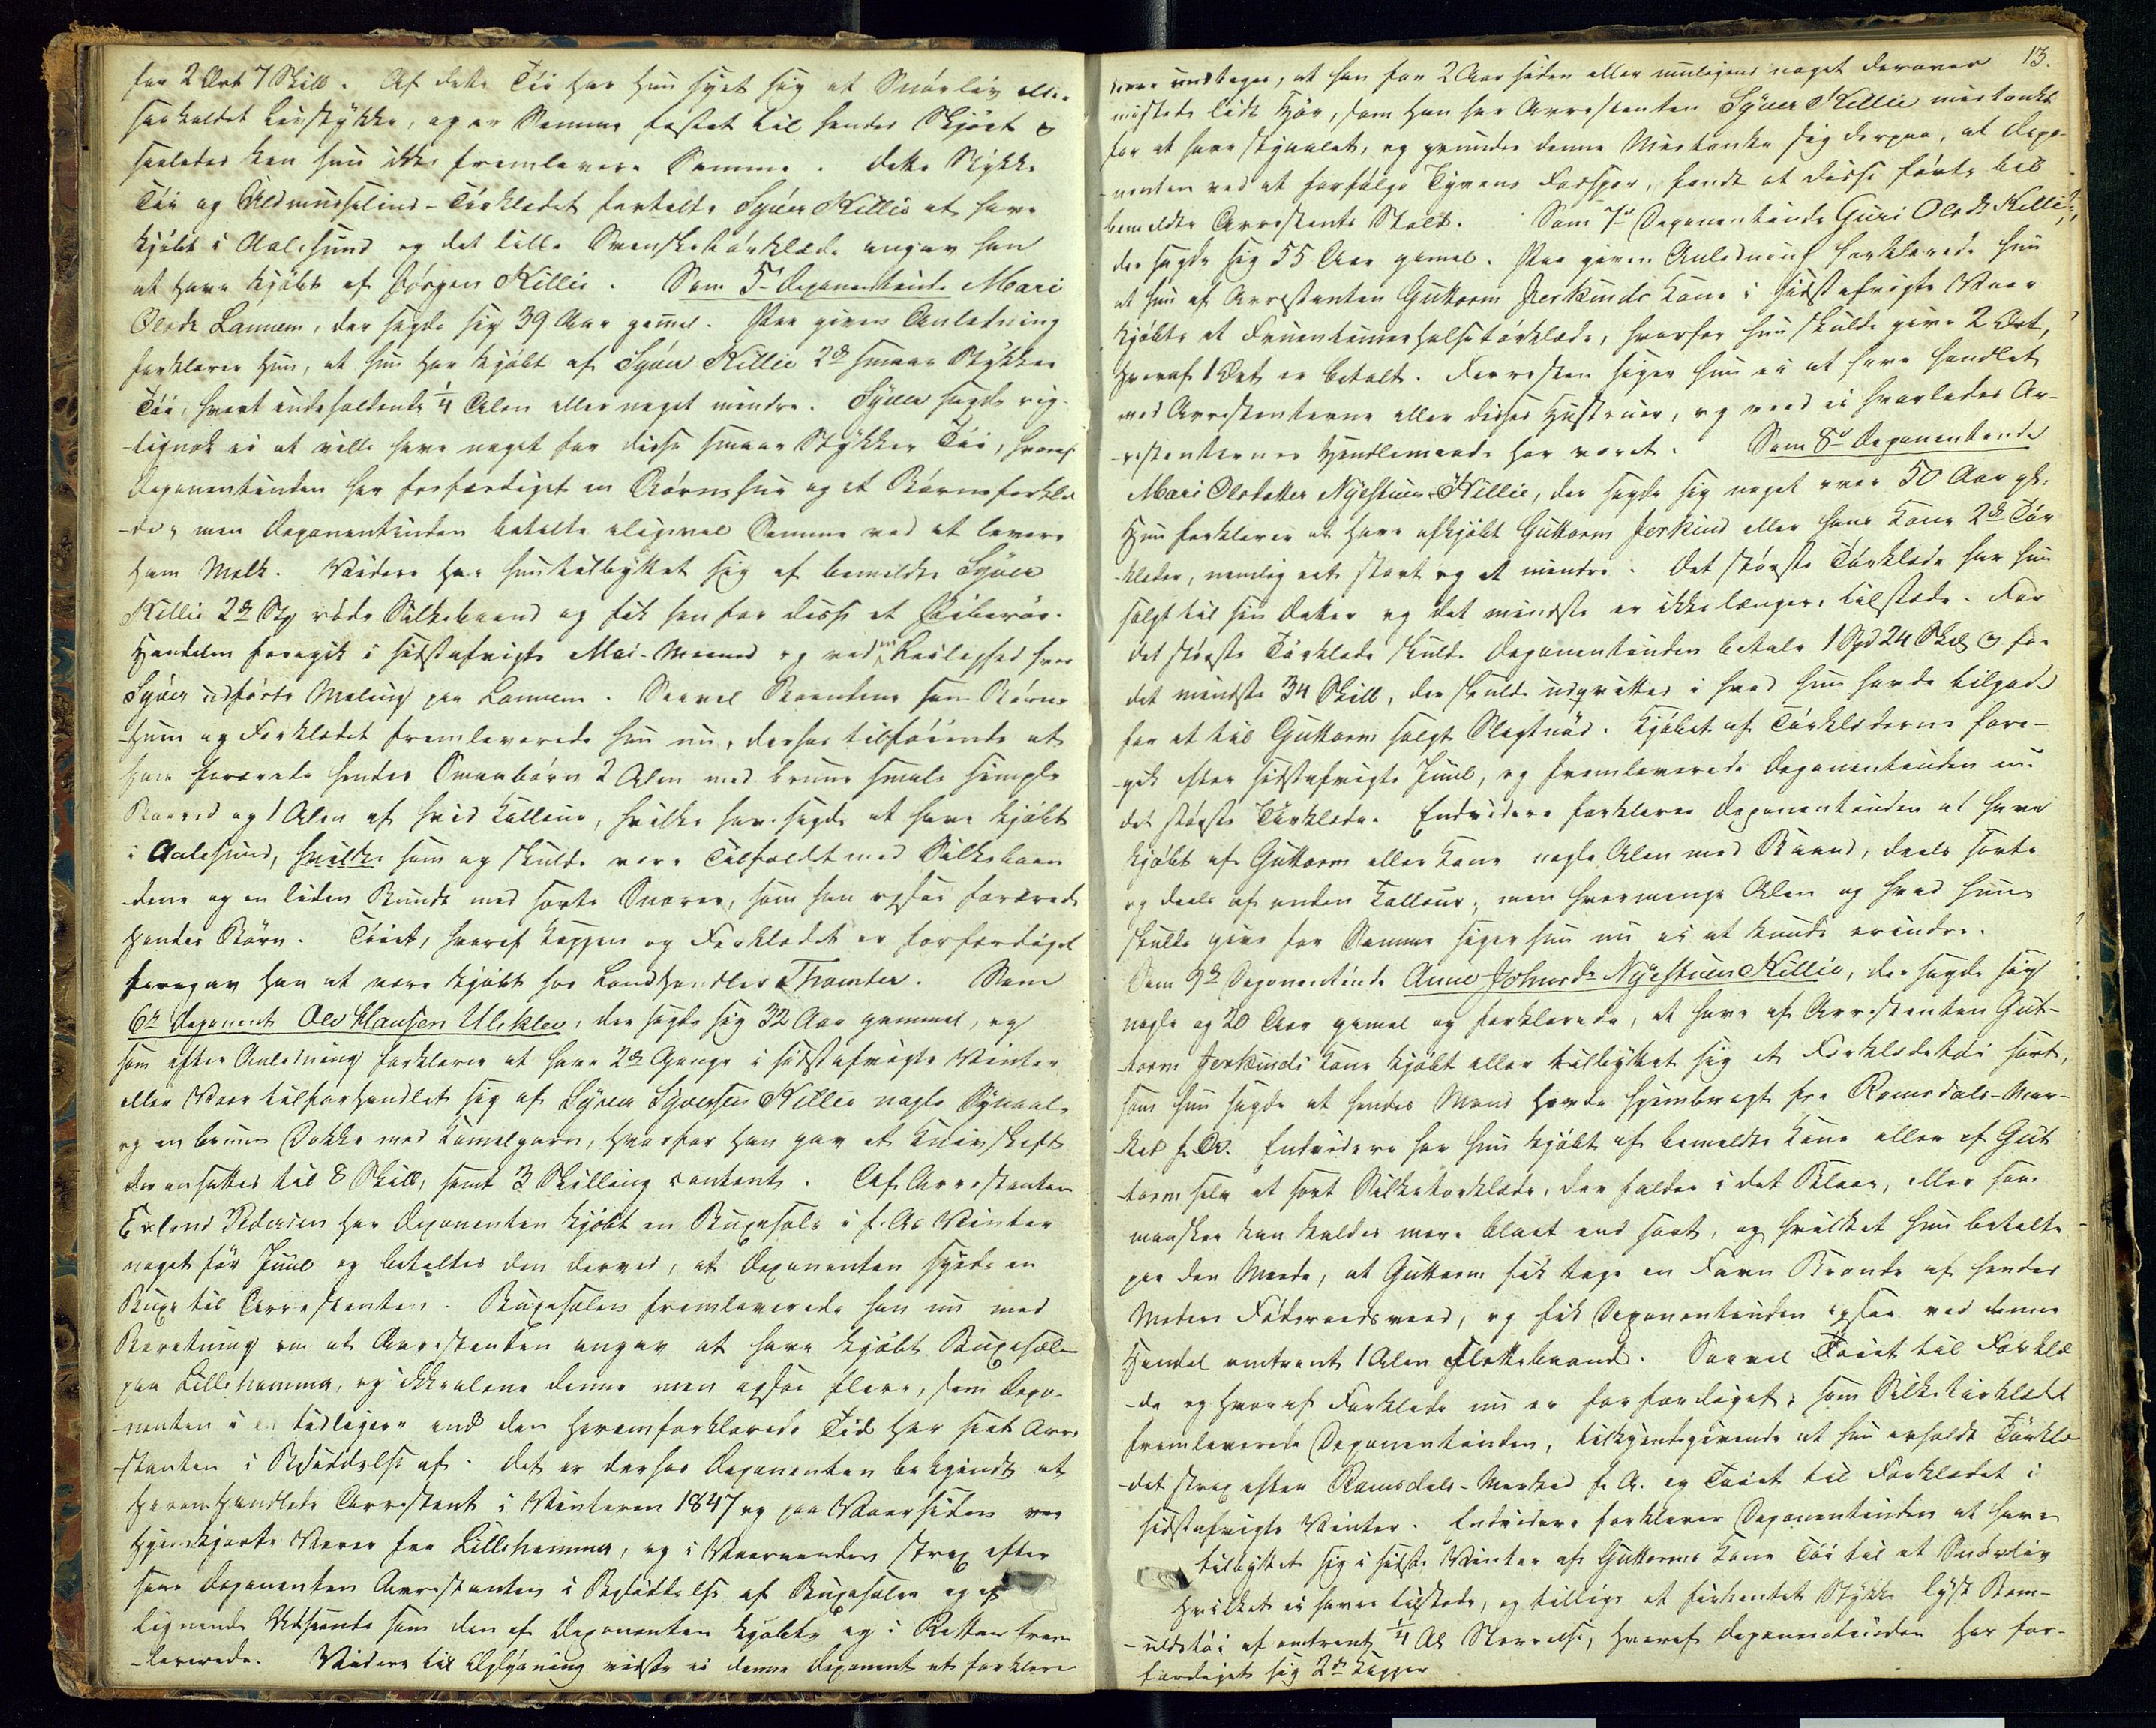 for 2 Ort 7 Skill. Af dette Töi har hun syet sig et Snörliv eller
saakaldet Livstykke, og er Samme fæstet til hendes Skjört og
saaledes kan hun ikke fremlevere Samme. Dette Stykke
Töi og Uldmusselins-Törklædet fortalte Syver Killie at have
kjöbt i Aalesund og det lille Svenskatörklæde angav han
at have kjöbt af Jörgen Killie. Som 5te Deponentinde Mari
Olsdr Lannem, der sagde sig 39 Aar gamel. Paa given Anledning
forklarer hun, at hun har kjöbt af Syver Killie 2de smaae Stykker
Töi, hvert indeholdende 1/4 Alen eller noget mindre. Syver sagde rig-
-tignok ei at ville have noget for disse smaae Stykker Töi, hvoraf
Deponentinden har forfærdiget en Börnehue og et Börneforklæ-
-de, men Deponentinden betalte aligevel Samme ved at levere
ham Melk. Videre har hun tilbyttet sig af bemeldte Syver
Killie 2de Stkr röde Silkebaand og fik han for disse et
Handelen foregik i sidstafvigte Mai-Maaned og ved en Leilighed hvor
Syver udförte Maling paa Lannem. Saavel Baandene som Börne-
-huen og Forklædet fremleverede hun nu, derhos tilföiende at
han forærede hendes Smaabörn 2 Alen med brune smale simple
Baand og 1 Alen af hvid Kulleur, hvilke han sagde at have kjöbt
i Aalesund, hvilke som og skulde være Tilfældet med Silkebaan-
-dene og en liden Bundt med sorte Snorer, som han ogsaa forærede
hendes Börn. Töiet, hvoraf Kappen og Forklædet er forfærdiget
foregav han at være kjöbt hos Landhandler Thomter. Som
6te Deponent Ole Hansen Uleklev, der sagde sig 32 Aar gammel, og
som efter Anledning forklarer at have 2de Gange i sidstafvigte Vinter
eller Vaar tilforhandlet sig af Syver Syversen Killie nogle Synaale
og en bruun Dokke med Kamelgarn, hvorfor han gav et Knivskeft
der ansattes til 8 Skill, samt 3 Skilling contant. Af Arrestanten
Erlend Pedersen har Deponenten kjöbt en Buxesele i f. Aars Vinter
noget för Juul og betaltes den derved, at Deponenten syede en
Buxe til Arrestanten. Buxeselen fremleverede han nu med
Beretning om at Arrestanten angav at have kjöbt Buxeselen
paa Lillehammer, og ikke alene denne men ogsaa flere, som Depo-
-nenten i en tidligere end den heromforklarede Tid har seet Arre-
-stanten i Besiddelse af. Det er derhos Deponenten bekjendt at
heromhandlede Arrestant i Vinteren 1847 og paa Vaarsiden var
hjemkjörte Varer fra Lillehammer, og i Vaaraanden strax efter
saae Deponenten Arrestanten i Besiddelse af Buxeseler og af
lignende Udseende som den af Deponenten kjöbte og i Retten frem-
-leverede. Videre til Oplysning vidste ei denne Deponent at forklare
13.
være undtages, at han for 2 Aar siden eller muligens noget derover
mistede lidt Höe, som han har Arrestanten Syver Killie mistænkt
for at have stjaalet, og grunder denne Mistanke sig derpaa, at Depo-
-nenten ved at forfölge Tyvens Fodspor, fandt at disse förte til
bemeldte Arrestants Stald. Som 7de Deponentinde Guri Olsdr Killie,
der sagde sig 55 Aar gamel. Paa given Anledning forklarede hun
at hun af Arrestanten Guttorm Jerkinds Kone i sidstafvigte Vaar
kjöbte et Fruentimerhalsetörklæde, hvorfor hun skulde give 2 Ort,
hvoraf 1 Ort er betalt. Forresten siger hun ei at have handlet
med Arrestanterne eller disses Hustruer, og veed ei hvorledes Ar-
-restanternes Handlemaade har været. Som 8de Deponentinde
Mari Olsdatter Nÿestuen Killie, der sagde sig noget over 50 Aar gl.
Hun forklarer at have afkjöbt Guttorm Jerkind eller hans Kone 2de Tör-
-klæder, nemlig eet stort og et mindre. Det störste Törklæde har hun
solgt til sin Datter og det mindste er ikke længere tilstæde. For
det störste Törklæde skulde Deponentinden betale 1 Spd 24 Skill og for
det mindste 34 Skill, der skulde udqvittes i hvad hun havde tilgode
for et til Guttorm solgt Slagtnöd. Kjöbet af Törklæderne fore-
-gik efter sidstafvigte Juul, og fremleverede Deponentinden nu
det störste Törklæde. Endvidere forklarer Deponentinden at have
kjöbt af Guttorm eller Kone nogle Alen med Baand, deels sorte
og deels af anden Kulleur, men hvormange Alen og hvad hun
skulde give for Samme siger hun nu ei at kunde erindre.
Som 9de Deponentinde Anne Johnsdr Nÿestuen Killie, der sagde sig
nogle og 20 Aar gamel og forklarede, at have af Arrestanten Gut-
-torm Jerkinds Kone kjöbt eller tilbyttet sig et Forklædetöi sort,
som hun sagde at hendes Mand havde hjembragt fra Romsdals-Mar-
-ked f. Ar. Endvidere har hun kjöbt af bemeldte Kone eller af Gut-
-torm selv et sort Silketörklæde, der falder i det Blaae, eller som
maaskee kan kaldes mere blaat end sort, og hvilket hun betalte
paa den Maade, at Guttorm fik tage en Favn Brænde af hendes
Moders Föderaadsveed, og fik Deponentinden ogsaa ved denne
Handel omtrent 1 Alen Flettebaand. Saavel Töiet til Forklæ-
-de og hvoraf Forklæde nu er forfærdiget, som Silketörklædet
fremleverede Deponentinden, tilkjendegivende at hun erholdt Törklæ-
-det strax efter Romsdals-Marked f. A. og Töiet til Forklædet i
sidstafvigte Vinter. Endvidere forklarer Deponentinden at have
tilbyttet sig i sidste Vinter af Guttorms Kone Töi til et Snörliv
hvilket ei haves tilstæde, og tillige et firkantet Stykke lyst Bom-
-uldstöi af omtrent 1/4 Al. Störrelse, hvoraf Deponentinden har for-
færdiget sig 2de Kapper